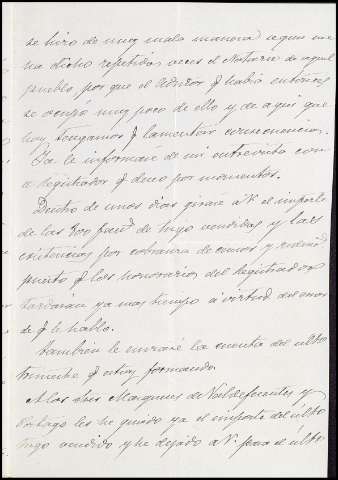 se hizo de muy mala manera según me
ha dicho repetidas veces el Notario de aquel
pueblo por que el Admor q había entonces
se ocupó muy poco de ello y de aquí que
hoy tengamos q lamentar consecuencias.
Ya le informaré de mi entrevista con
el registrador q deseo por momentos.
Dentro de unos días giraré á V. el importe
de las 300 fan.s de trigo vendidas y las
existencias por cobranza de censos y
puesto q los honorarios del Registrador
tardarán ya mas tiempo á virtud del
de q le hablo.
También le enviaré la cuenta del ulto
trimestre q estoy formando.
A los Sres Marqueses de Valdefuentes y
les he girado ya el importe del ulto
trigo vendido y he dejado á V. para el ulto